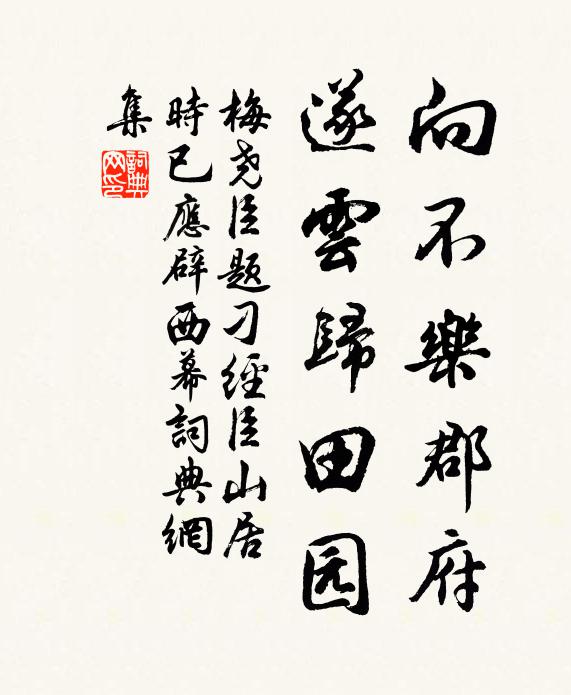 向不樂郡府
遂雲歸田园
梅尭臣題刁經臣山居
時已應辟西幕詞典網
集
詞典网印